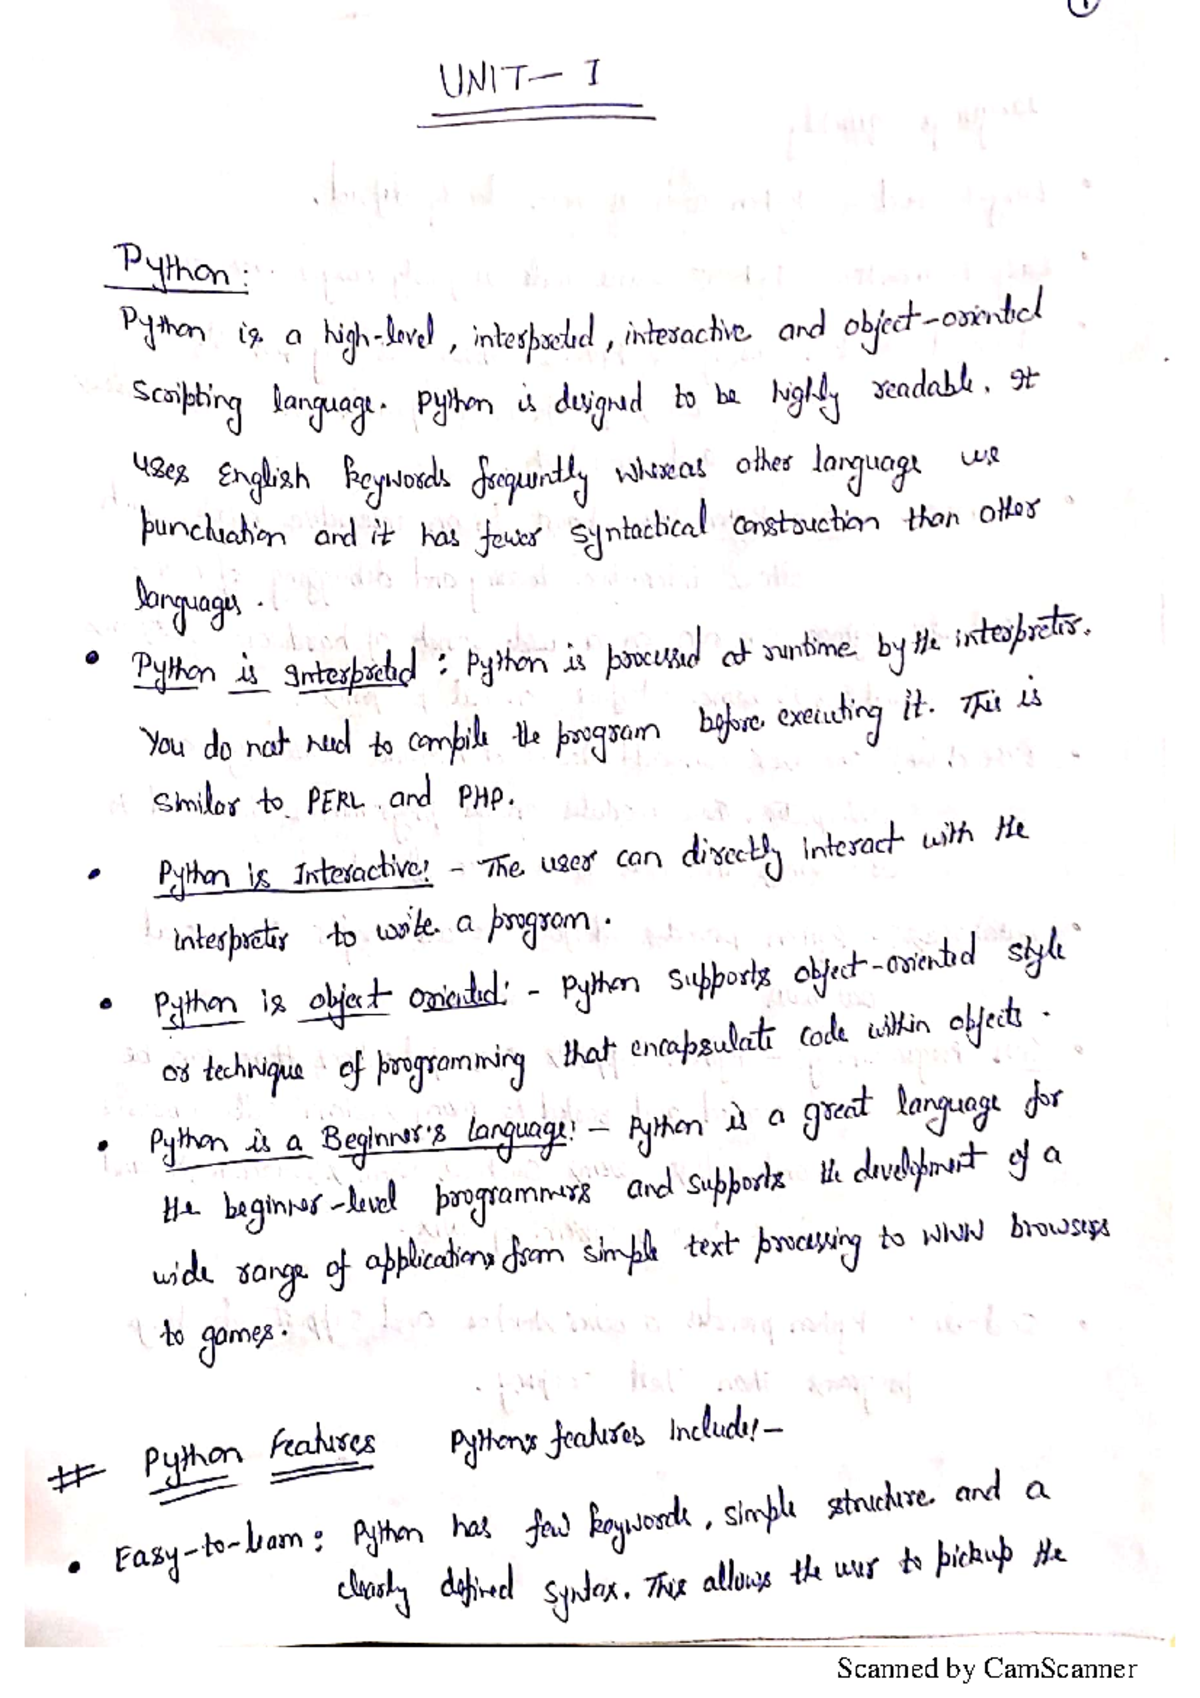 1
UNIT - I
Python:
Python is a high-level, interpreted, interactive and object-oriented
Scripting language. Python is designed to be highly readable. It
uses English keywords frequently whereas other language use
punctuation and it has fewer syntactical construction than other
languages.
• Python is Interpreted : Python is processed at runtime by the interpreter.
You do not need to compile the program before executing it. This is
similar to PERL and PHP.
• Python is Interactive:- The user can directly interact with the
interpreter to write a program.
• Python is object oriented:- Python supports object-oriented style
or technique of programming that encapsulate code within objects.
• Python is a Beginner's Language:- Python is a great language for
the beginner-level programmers and supports the development of a
wide range of applications from simple text processing to WWW browsers
to games.
# Python Features Python's features Include:-
• Easy-to-learn : Python has few keywords, simple structure and a
clearly defined syntax. This allows the user to pickup the
Scanned by CamScanner